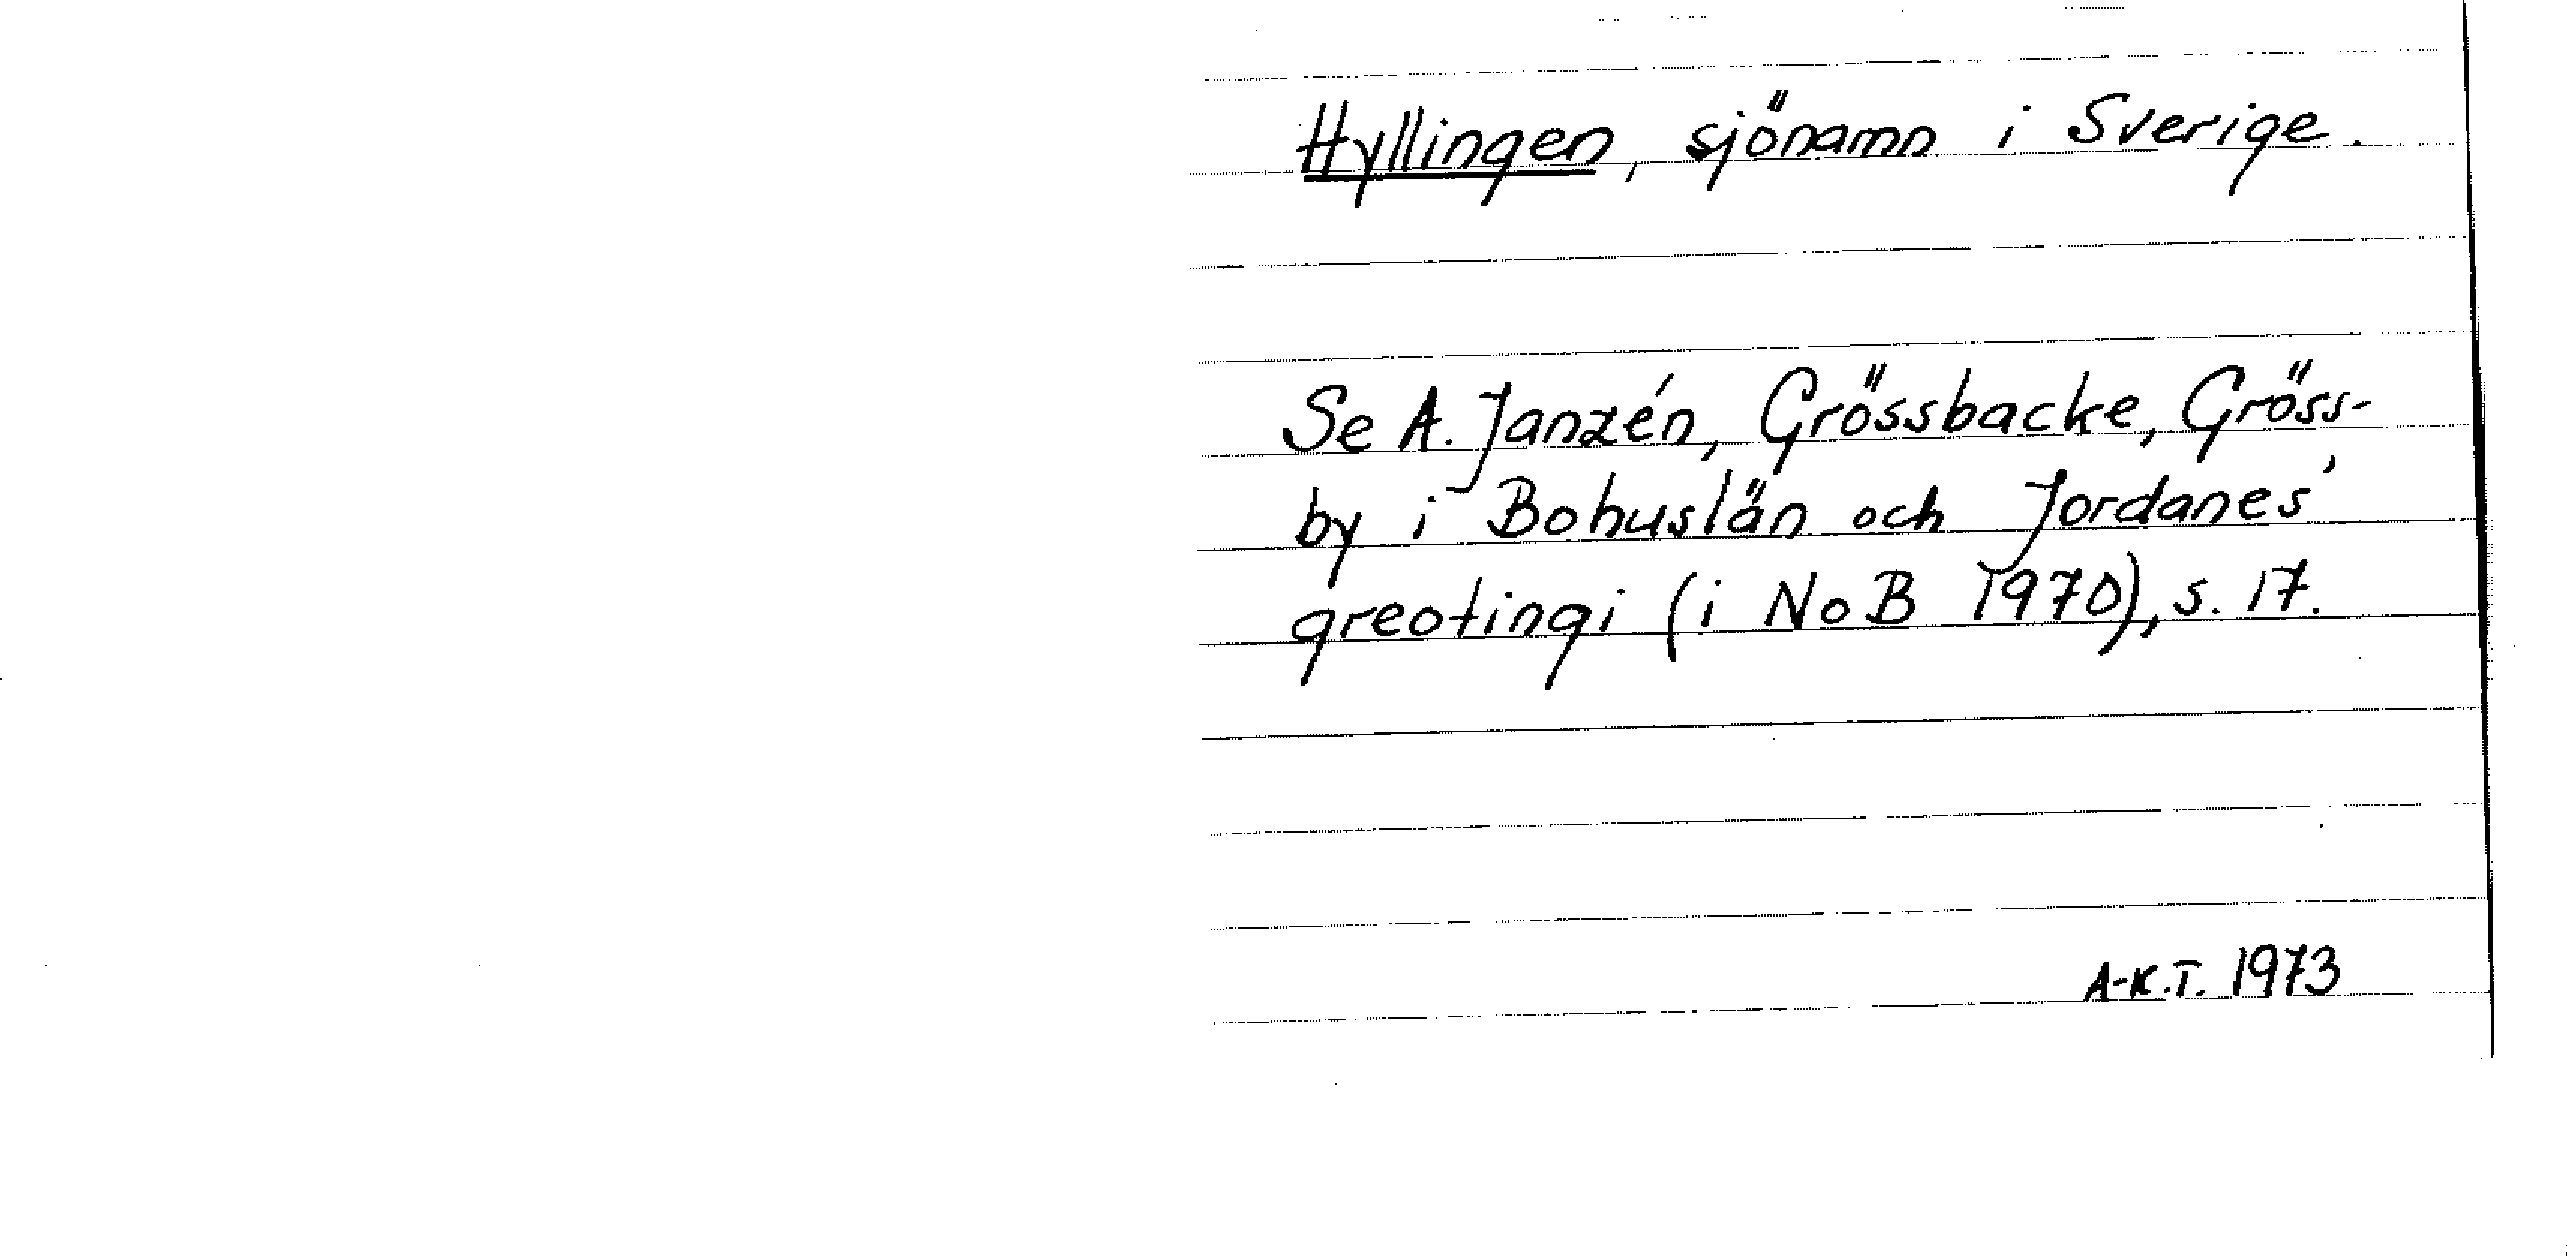 Hyllingen, sjönamn i Sverige.
Se A. Janzén, Grössbacke, Gröss-
by i Bohuslän och Jordanes'
greotingi (i NoB 1970), s. 17.
A-K.T. 1973